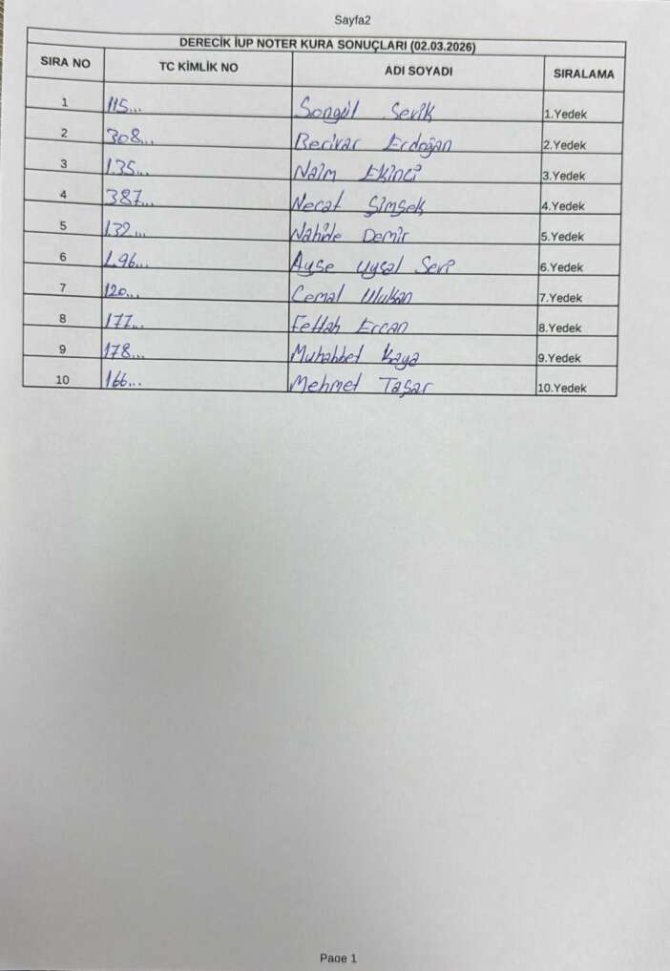 Sayfa2
DERECİK İUP NOTER KURA SONUÇLARI (02.03.2026)
SIRA NO TC KİMLİK NO ADI SOYADI SIRALAMA
1 115... Songül Sevik 1.Yedek
2 308... Berivar Erdoğan 2.Yedek
3 135... Naim Ekinci 3.Yedek
4 387... Necat Şimşek 4.Yedek
5 132... Nahide Demir 5.Yedek
6 196... Ayşe Uysal Seri 6.Yedek
7 120... Cemal Ulukan 7.Yedek
8 177... Fettah Ercan 8.Yedek
9 178... Muhabbet Kaya 9.Yedek
10 166... Mehmet Taşar 10.Yedek
Page 1